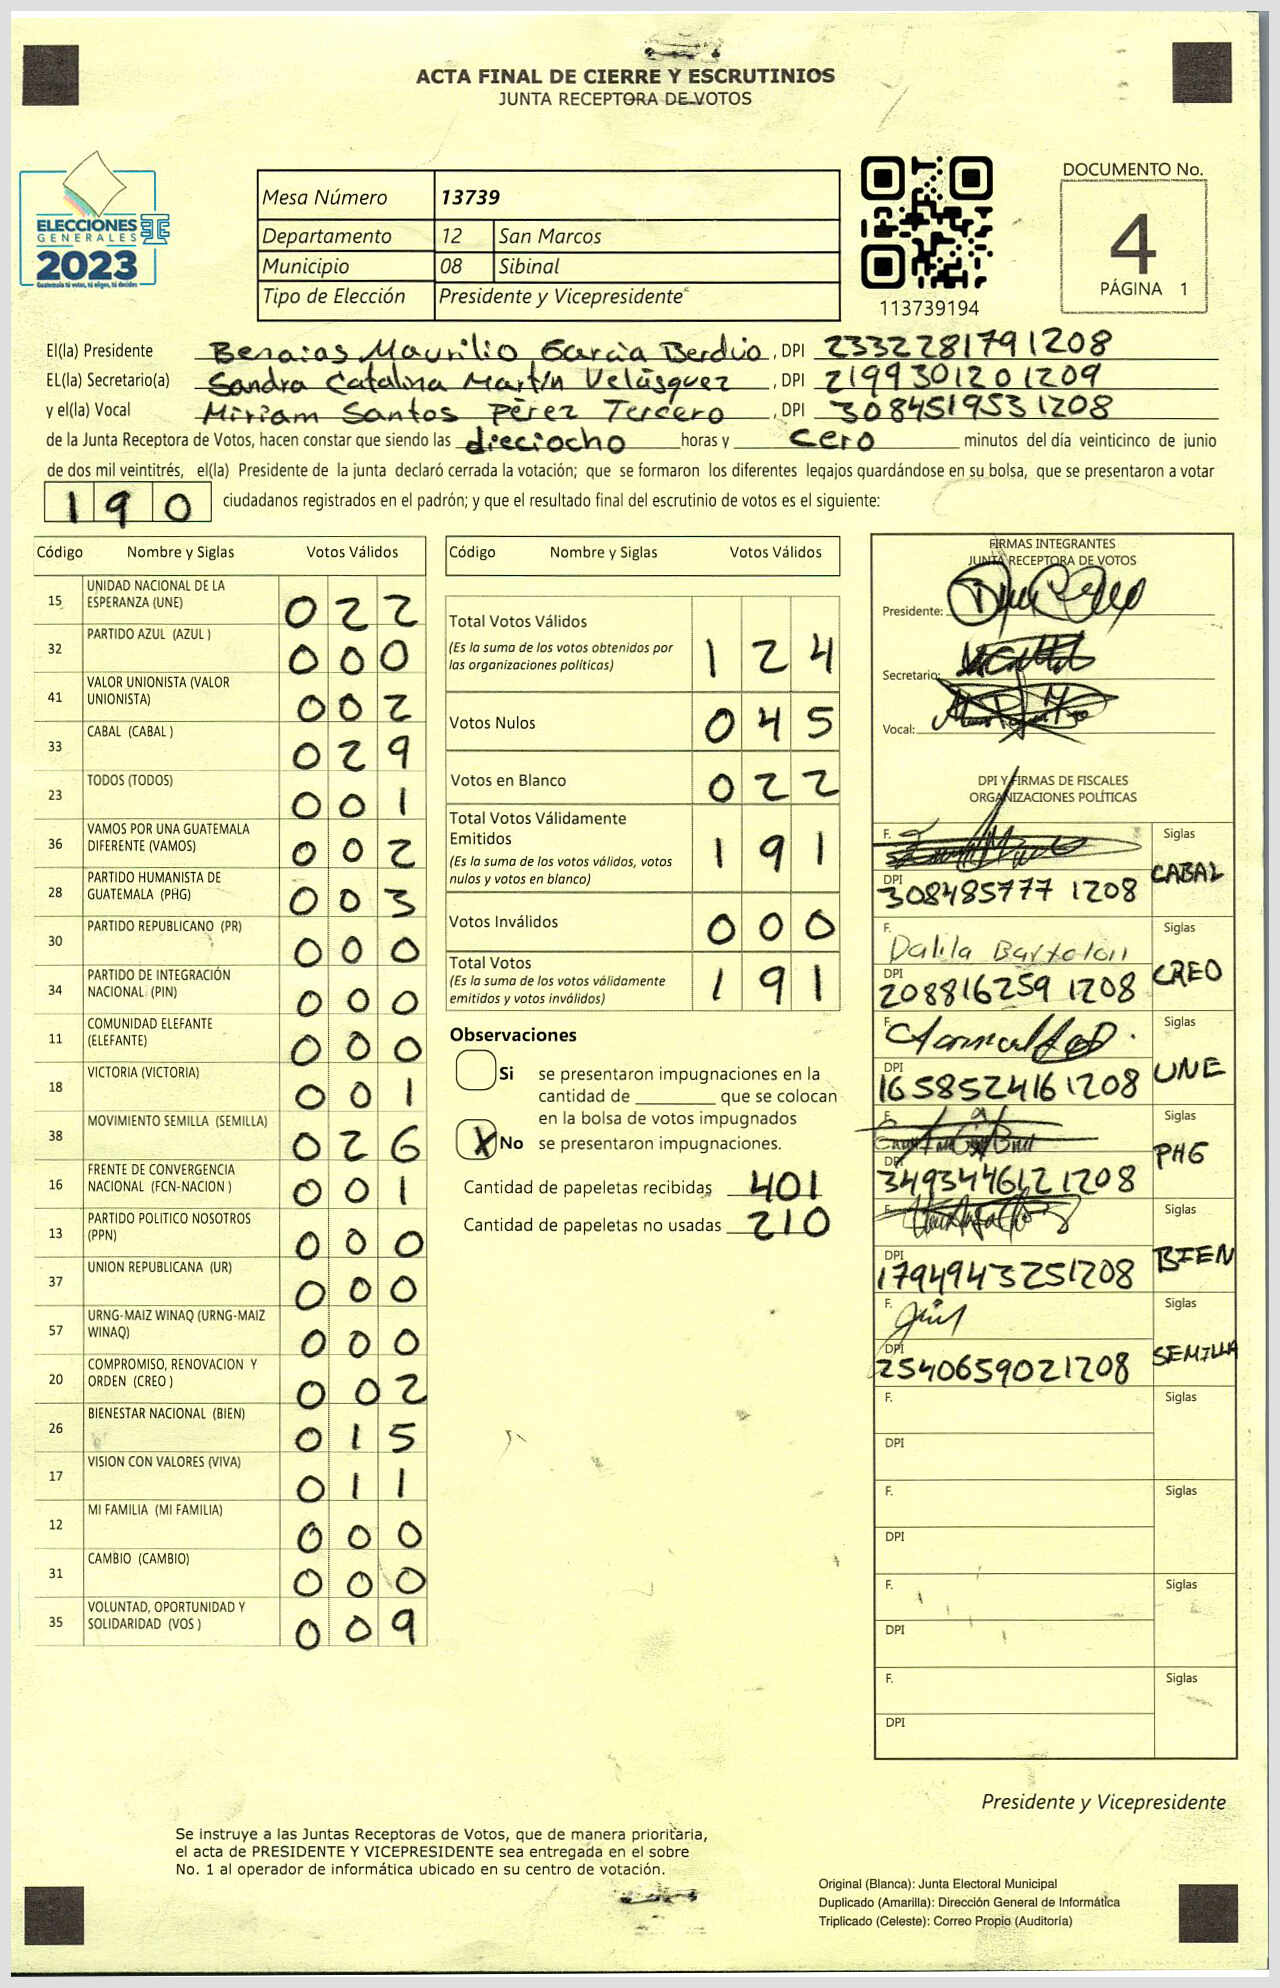 ACTA FINAL DE CIERRE Y ESCRUTINIOS
JUNTA RECEPTORA DE VOTOS
ELECCIONES
GENERALES
2023
Guatemala tú votas, tú eliges, tú decides
Mesa Número 13739
Departamento 12 San Marcos
Municipio 08 Sibinal
Tipo de Elección Presidente y Vicepresidente
113739194
DOCUMENTO No.
4
PÁGINA 1
El(la) Presidente Benaias Maurilio Garcia Berdúo, DPI 2332281791208
EL(la) Secretario(a) Sandra Catalina Martín Velásquez, DPI 2199301201209
y el(la) Vocal Miriam Santos Pérez Tercero, DPI 3084519531208
de la Junta Receptora de Votos, hacen constar que siendo las dieciocho horas y cero minutos del día veinticinco de junio
de dos mil veintitrés, el(la) Presidente de la junta declaró cerrada la votación; que se formaron los diferentes legajos guardándose en su bolsa, que se presentaron a votar
190 ciudadanos registrados en el padrón; y que el resultado final del escrutinio de votos es el siguiente:
Código Nombre y Siglas Votos Válidos
15 UNIDAD NACIONAL DE LA ESPERANZA (UNE) 022
32 PARTIDO AZUL (AZUL ) 000
41 VALOR UNIONISTA (VALOR UNIONISTA) 002
33 CABAL (CABAL ) 029
23 TODOS (TODOS) 001
36 VAMOS POR UNA GUATEMALA DIFERENTE (VAMOS) 002
28 PARTIDO HUMANISTA DE GUATEMALA (PHG) 003
30 PARTIDO REPUBLICANO (PR) 000
34 PARTIDO DE INTEGRACIÓN NACIONAL (PIN) 000
11 COMUNIDAD ELEFANTE (ELEFANTE) 000
18 VICTORIA (VICTORIA) 001
38 MOVIMIENTO SEMILLA (SEMILLA) 026
16 FRENTE DE CONVERGENCIA NACIONAL (FCN-NACION ) 001
13 PARTIDO POLITICO NOSOTROS (PPN) 000
37 UNION REPUBLICANA (UR) 000
57 URNG-MAIZ WINAQ (URNG-MAIZ WINAQ) 000
20 COMPROMISO, RENOVACION Y ORDEN (CREO ) 002
26 BIENESTAR NACIONAL (BIEN) 015
17 VISION CON VALORES (VIVA) 011
12 MI FAMILIA (MI FAMILIA) 000
31 CAMBIO (CAMBIO) 000
35 VOLUNTAD, OPORTUNIDAD Y SOLIDARIDAD (VOS ) 009
Código Nombre y Siglas Votos Válidos
Total Votos Válidos 124
(Es la suma de los votos obtenidos por
las organizaciones políticas)
Votos Nulos 045
Votos en Blanco 022
Total Votos Válidamente
Emitidos 191
(Es la suma de los votos válidos, votos
nulos y votos en blanco)
Votos Inválidos 000
Total Votos 191
(Es la suma de los votos válidamente
emitidos y votos inválidos)
Observaciones
Si se presentaron impugnaciones en la
cantidad de ________ que se colocan
en la bolsa de votos impugnados
X No se presentaron impugnaciones.
Cantidad de papeletas recibidas 401
Cantidad de papeletas no usadas 210
FIRMAS INTEGRANTES
JUNTA RECEPTORA DE VOTOS
Presidente:
Secretario:
Vocal:
DPI Y FIRMAS DE FISCALES
ORGANIZACIONES POLÍTICAS
F. Siglas
DPI 308485777 1208 CABAL
F. Dalila Bartolon Siglas
DPI 208816259 1208 CREO
F. Siglas
DPI 1658524161208 UNE
F.
DPI 3493446121208 PHG
F. Siglas
DPI 1794943251208 BIEN
F. Siglas
DPI 2540659021208 SEMILLA
F. Siglas
DPI
F. Siglas
DPI
F. Siglas
DPI
F. Siglas
DPI
Presidente y Vicepresidente
Se instruye a las Juntas Receptoras de Votos, que de manera prioritaria,
el acta de PRESIDENTE Y VICEPRESIDENTE sea entregada en el sobre
No. 1 al operador de informática ubicado en su centro de votación.
Original (Blanca): Junta Electoral Municipal
Duplicado (Amarilla): Dirección General de Informática
Triplicado (Celeste): Correo Propio (Auditoría)